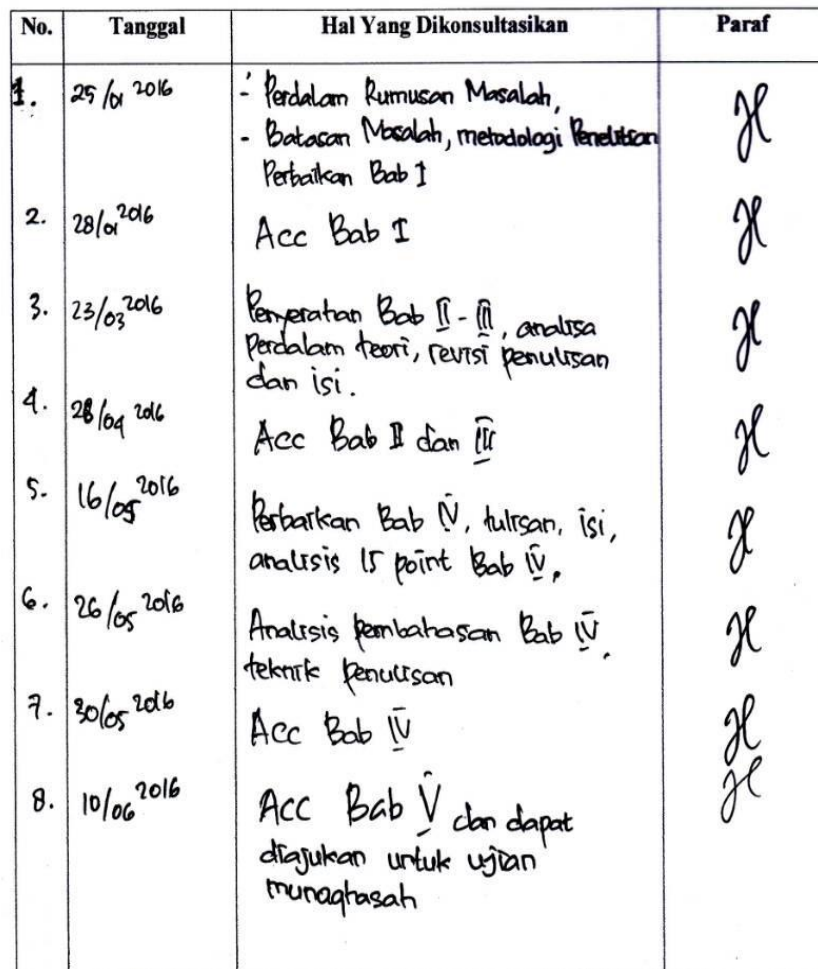 No. Tanggal Hal Yang Dikonsultasikan Paraf
1. 25/01 2016 - Perdalam Rumusan Masalah,
- Batasan Masalah, metodologi Penelitian
Perbaikan Bab I
2. 28/01 2016 Acc Bab I
3. 23/03 2016 Penyerahan Bab II - III, analisa
Perdalam teori, revisi penulisan
dan isi.
4. 28/04 2016 Acc Bab II dan III
5. 16/05 2016 Perbaikan Bab IV, tulisan, isi,
analisis 15 point Bab IV.
6. 26/05 2016 Analisis pembahasan Bab IV,
teknik penulisan
7. 30/05 2016 Acc Bab IV
8. 10/06 2016 Acc Bab V dan dapat
diajukan untuk ujian
munaqhasah